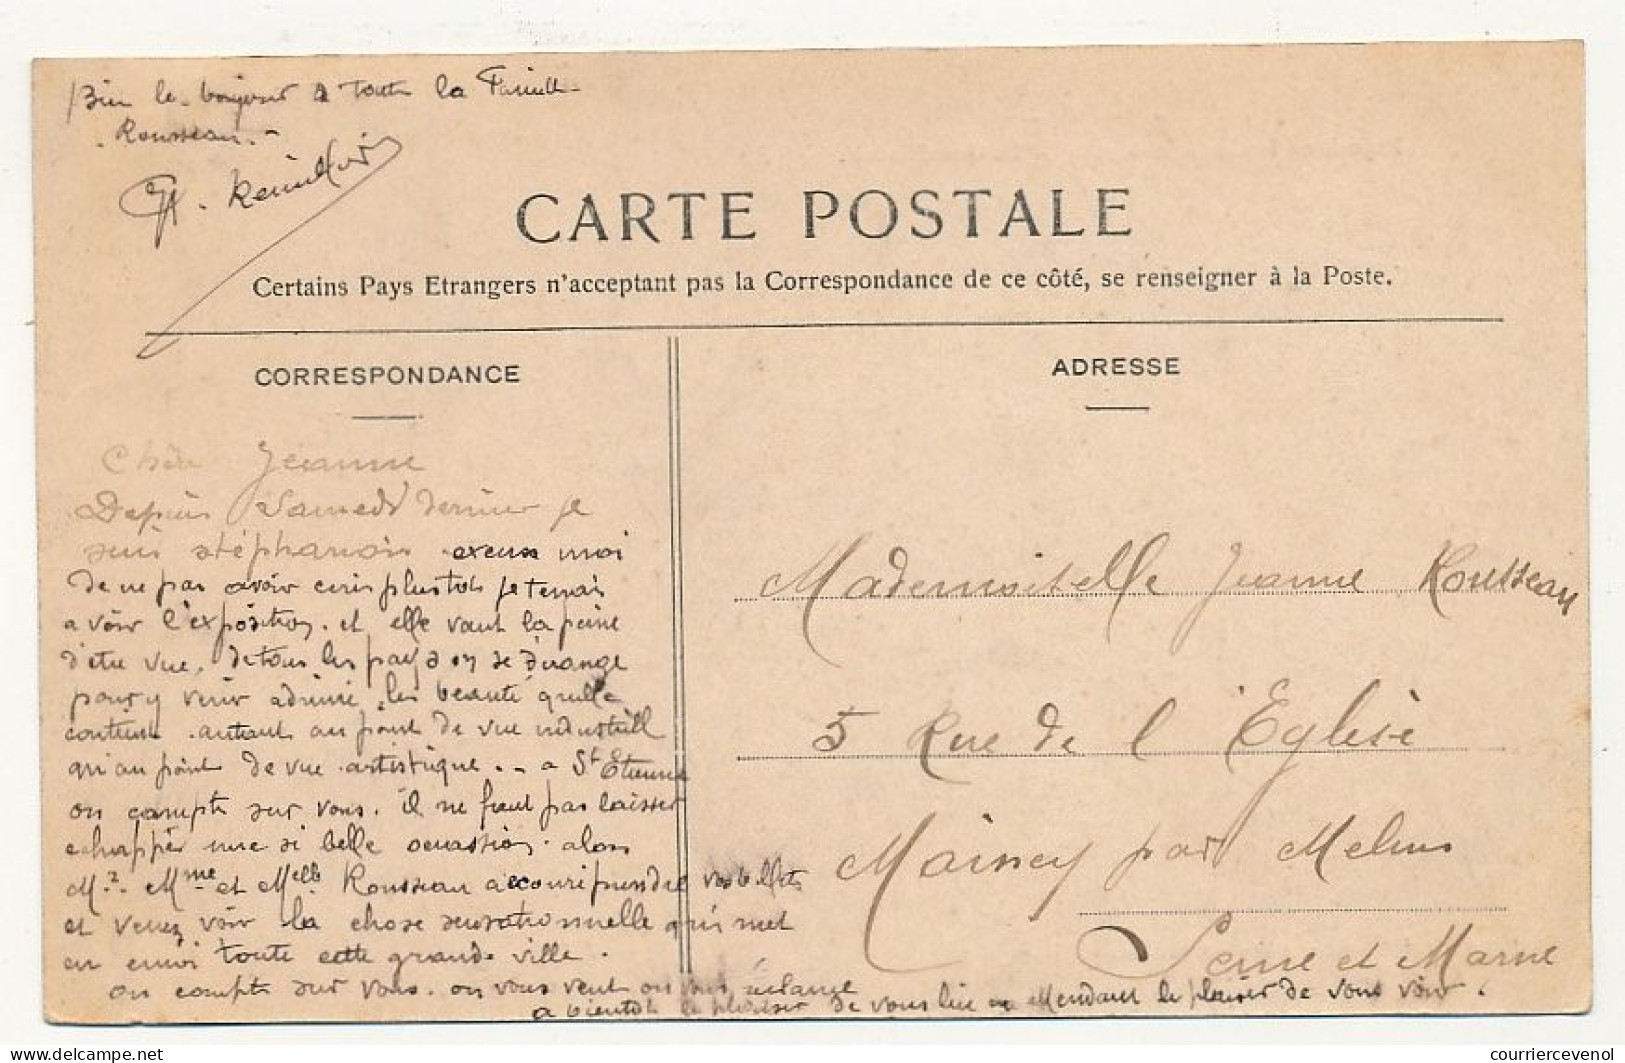 Bien le bonjour à toute la Famille
Rousseau. -
CARTE POSTALE
Certains Pays Etrangers n'acceptant pas la Correspondance de ce côté, se renseigner à la Poste.
CORRESPONDANCE
ADRESSE
Chère Jeanne
Depuis Samedi dernier je
suis stéphanois. excuse moi
de ne pas avoir ecris plustot je tenais
a voir l'exposition. et elle vaut la peine
d'etre vue. de tous les pays on se derange
pour y venir admiré les beauté qu'elle
contient. autant au point de vue industriell
qu'au point de vue artistique. - a St Etienne
on compte sur vous. il ne faut pas laisser
echapper une si belle occassion. alors
Mr. Mme et Melle Rousseau accouri prendre vos billets
et venez voir la chose sensationnelle qui met
en emoi toute cette grande ville.
on compte sur vous. on vous veut on vous réclame
a bientot le plaisir de vous lire en attendant le plaisir de vous voir.
Mademoiselle Jeanne Rousseau
5 Rue de l'Eglise
Maincy par Melun
Seine et Marne
delcampe.net
courriercevenol